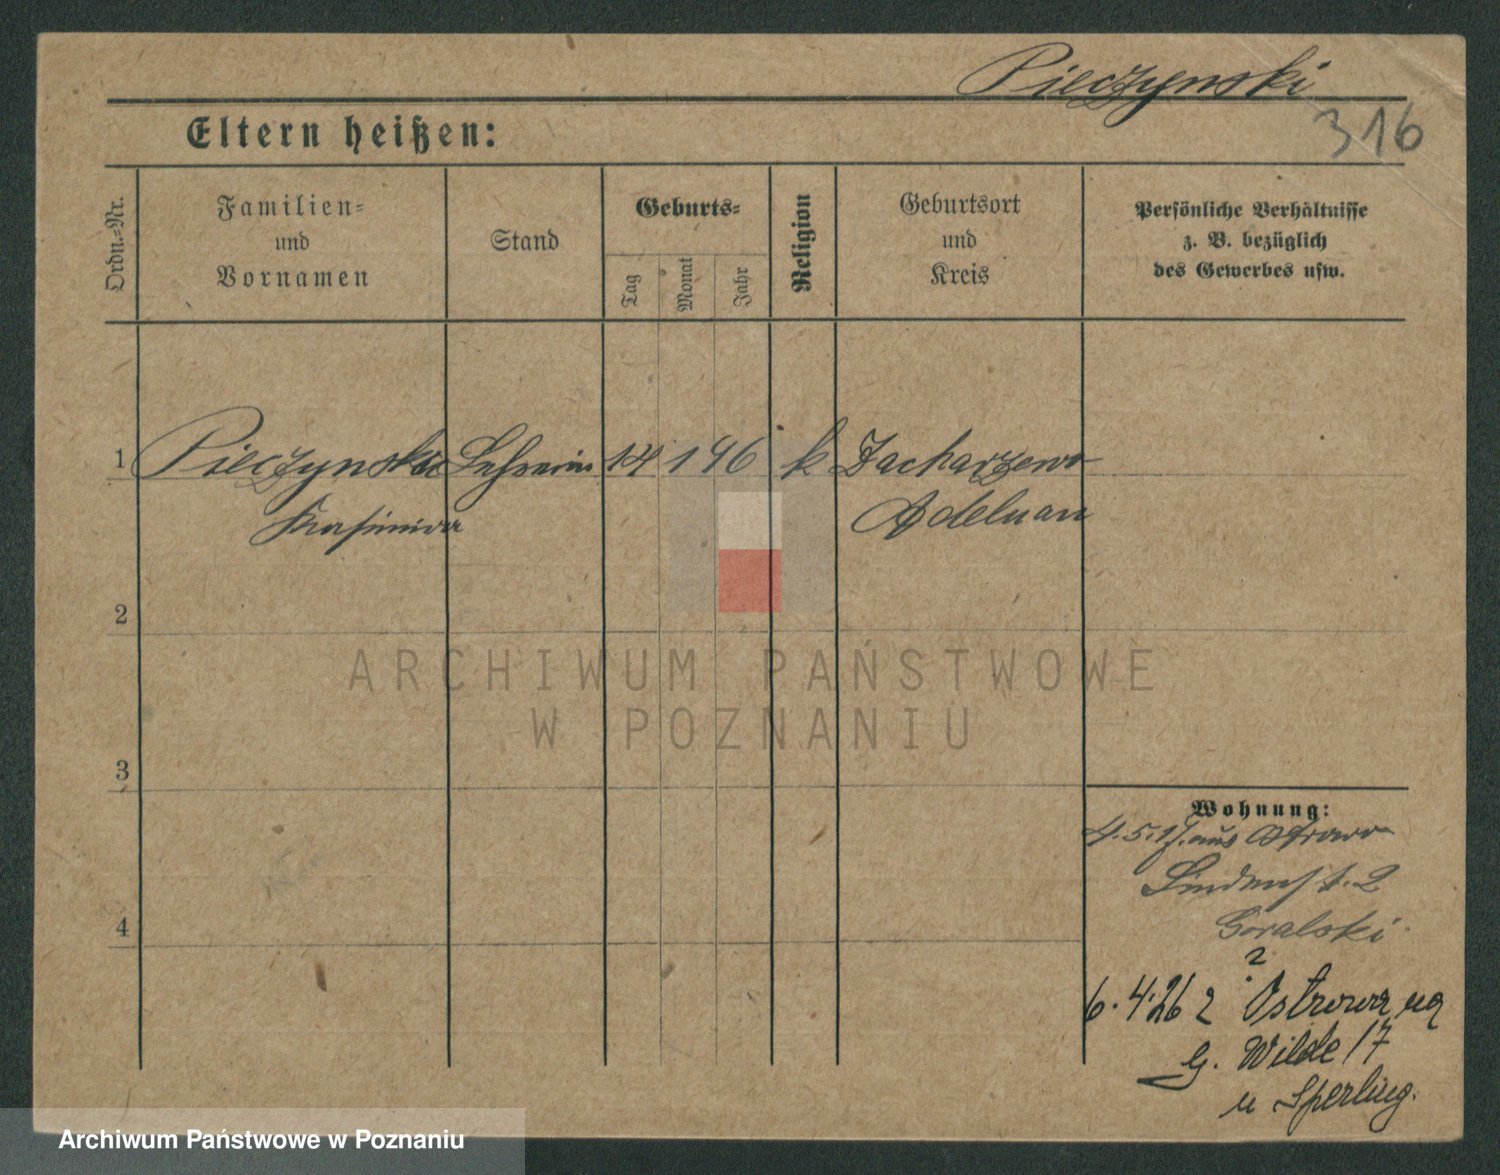 Pieczynski
316
Eltern heißen:
Ordn.-Nr.
Familien-
und
Vornamen
Stand
Geburts-
Tag
Monat
Jahr
Religion
Geburtsort
und
Kreis
Persönliche Verhältnisse
z. B. bezüglich
des Gewerbes usw.
1 Pieczynska Lehrerin 14 1 96 k Zacharzewo
Kasimira Adelnau
2
3
4
Wohnung:
4.5.17. aus Ostrowo
Lindenst. 2
Goralski
2
6.4.26 z Ostrowa na
G. Wilde 17
u Sperling.
ARCHIWUM PAŃSTWOWE
W POZNANIU
Archiwum Państwowe w Poznaniu